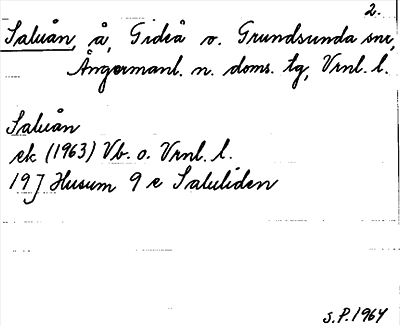 2.
Saluån, å, Gideå o. Grundsunda snr,
Ångermanl. n. doms. tg, Vrnl. l.
Saluån
ek (1963) Vb. o. Vrnl. l.
19J Husum 9 e Saluliden
S.P. 1964